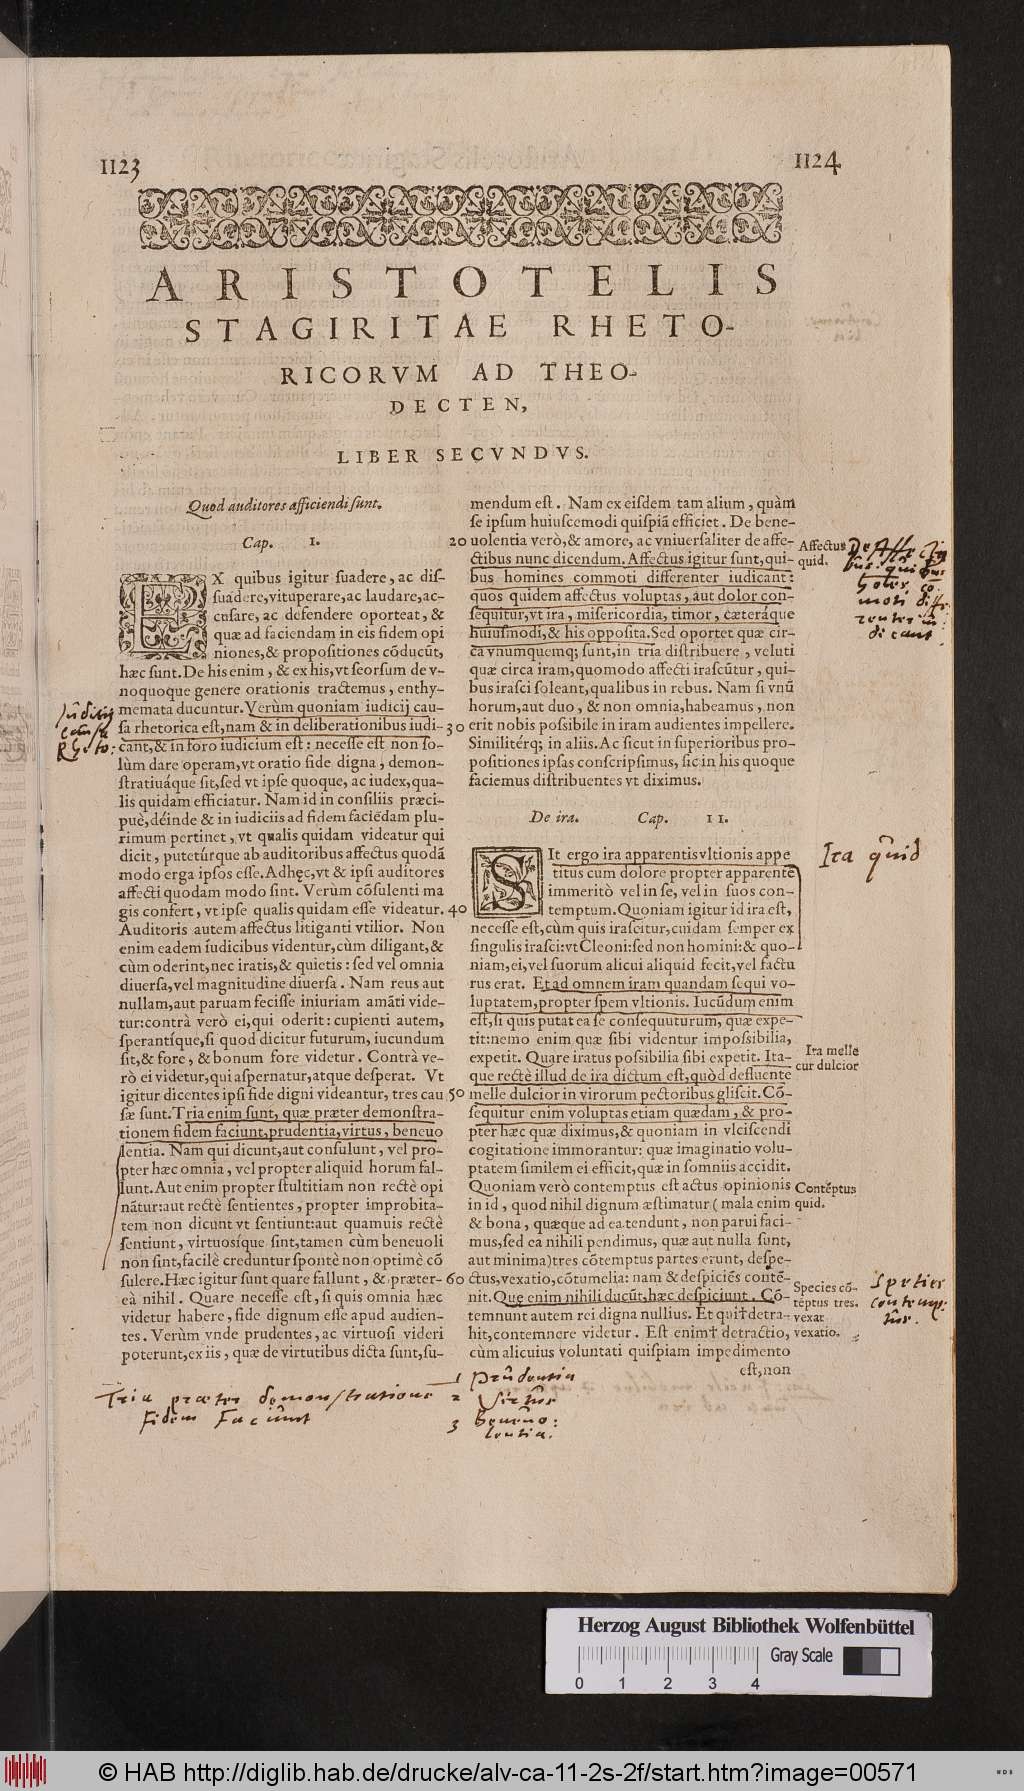 1123
1124
ARISTOTELIS
STAGIRITAE RHETO-
RICORVM AD THEO-
DECTEN,
LIBER SECVNDVS.
Quod auditores afficiendi sunt.
Cap. I.
EX quibus igitur suadere, ac dis-
suadere, vituperare, ac laudare, ac-
cusare, ac defendere oporteat, &
quæ ad faciendam in eis fidem opi
niones, & propositiones cōducūt,
hæc sunt. De his enim, & ex his, vt seorsum de v-
noquoque genere orationis tractemus, enthy-
memata ducuntur. Verùm quoniam iudicij cau-
sa rhetorica est, nam & in deliberationibus iudi-
cant, & in foro iudicium est: necesse est non so-
lùm dare operam, vt oratio fide digna, demon-
stratiuáque sit, sed vt ipse quoque, ac iudex, qua-
lis quidam efficiatur. Nam id in consiliis præci-
puè, déinde & in iudiciis ad fidem faciēdam plu-
rimum pertinet, vt qualis quidam videatur qui
dicit, putetúrque ab auditoribus affectus quodā
modo erga ipsos esse. Adhęc, vt & ipsi auditores
affecti quodam modo sint. Verùm cōsulenti ma
gis confert, vt ipse qualis quidam esse videatur.
Auditoris autem affectus litiganti vtilior. Non
enim eadem iudicibus videntur, cùm diligant, &
cùm oderint, nec iratis, & quietis: sed vel omnia
diuersa, vel magnitudine diuersa. Nam reus aut
nullam, aut paruam fecisse iniuriam amāti vide-
tur: contrà verò ei, qui oderit: cupienti autem,
sperantíque, si quod dicitur futurum, iucundum
sit, & fore, & bonum fore videtur. Contrà ve-
rò ei videtur, qui aspernatur, atque desperat. Vt
igitur dicentes ipsi fide digni videantur, tres cau
sæ sunt. Tria enim sunt, quæ præter demonstra-
tionem fidem faciunt, prudentia, virtus, beneuo
lentia. Nam qui dicunt, aut consulunt, vel pro-
pter hæc omnia, vel propter aliquid horum fal-
lunt. Aut enim propter stultitiam non rectè opi
nātur: aut rectè sentientes, propter improbita-
tem non dicunt vt sentiunt: aut quamuis rectè
sentiunt, virtuosíque sint, tamen cùm beneuoli
non sint, facilè creduntur spontè non optimè cō
sulere. Hæc igitur sunt quare fallunt, & præter-
eà nihil. Quare necesse est, si quis omnia hæc
videtur habere, fide dignum esse apud audien-
tes. Verùm vnde prudentes, ac virtuosi videri
poterunt, ex iis, quæ de virtutibus dicta sunt, su-
Iudicij
causa
Rheto:
Tria præter demonstratione
fidem faciunt
1 Prudentia
2 Virtus
3 Beneuo:
lentia.
20
30
40
50
60
mendum est. Nam ex eisdem tam alium, quàm
se ipsum huiuscemodi quispiā efficiet. De bene-
uolentia verò, & amore, ac vniuersaliter de affe-
ctibus nunc dicendum. Affectus igitur sunt, qui-
bus homines commoti differenter iudicant:
quos quidem affectus voluptas, aut dolor con-
sequitur, vt ira, misericordia, timor, cæteráque
huiusmodi, & his opposita. Sed oportet quæ cir-
ca vnumquemq; sunt, in tria distribuere, veluti
quæ circa iram, quomodo affecti irascūtur, qui-
bus irasci soleant, qualibus in rebus. Nam si vnū
horum, aut duo, & non omnia, habeamus, non
erit nobis possibile in iram audientes impellere.
Similitérq; in aliis. Ac sicut in superioribus pro-
positiones ipsas conscripsimus, sic in his quoque
faciemus distribuentes vt diximus.
De ira. Cap. II.
SIt ergo ira apparentis vltionis appe
titus cum dolore propter apparentē
immeritò vel in se, vel in suos con-
temptum. Quoniam igitur id ira est,
necesse est, cùm quis irascitur, cuidam semper ex
singulis irasci: vt Cleoni: sed non homini: & quo-
niam, ei, vel suorum alicui aliquid fecit, vel factu
rus erat. Et ad omnem iram quandam sequi vo-
luptatem, propter spem vltionis. Iucūdum enim
est, si quis putat ea se consequuturum, quæ expe-
tit: nemo enim quæ sibi videntur impossibilia,
expetit. Quare iratus possibilia sibi expetit. Ita-
que rectè illud de ira dictum est, quòd defluente
melle dulcior in virorum pectoribus gliscit. Cō-
sequitur enim voluptas etiam quædam, & pro-
pter hæc quæ diximus, & quoniam in vlciscendi
cogitatione immorantur: quæ imaginatio volu-
ptatem similem ei efficit, quæ in somniis accidit.
Quoniam verò contemptus est actus opinionis
in id, quod nihil dignum æstimatur (mala enim
& bona, quæque ad ea tendunt, non parui faci-
mus, sed ea nihili pendimus, quæ aut nulla sunt,
aut minima) tres cōtemptus partes erunt, despe-
ctus, vexatio, cōtumelia: nam & despiciēs contē-
nit. Que enim nihili ducūt, hæc despiciunt. Cō-
temnunt autem rei digna nullius. Et qui† detra-
hit, contemnere videtur. Est enim† detractio,
cùm alicuius voluntati quispiam impedimento
est, non
Affectus
quid.
De Affectibus
quibus
Ira quid
Ira melle
cur dulcior
Contēptus
quid.
Species cō-
tēptus tres.
vexat
vexatio.
Species
contemp:
tus.
Herzog August Bibliothek Wolfenbüttel
Gray Scale
0 1 2 3 4
© HAB http://diglib.hab.de/drucke/alv-ca-11-2s-2f/start.htm?image=00571